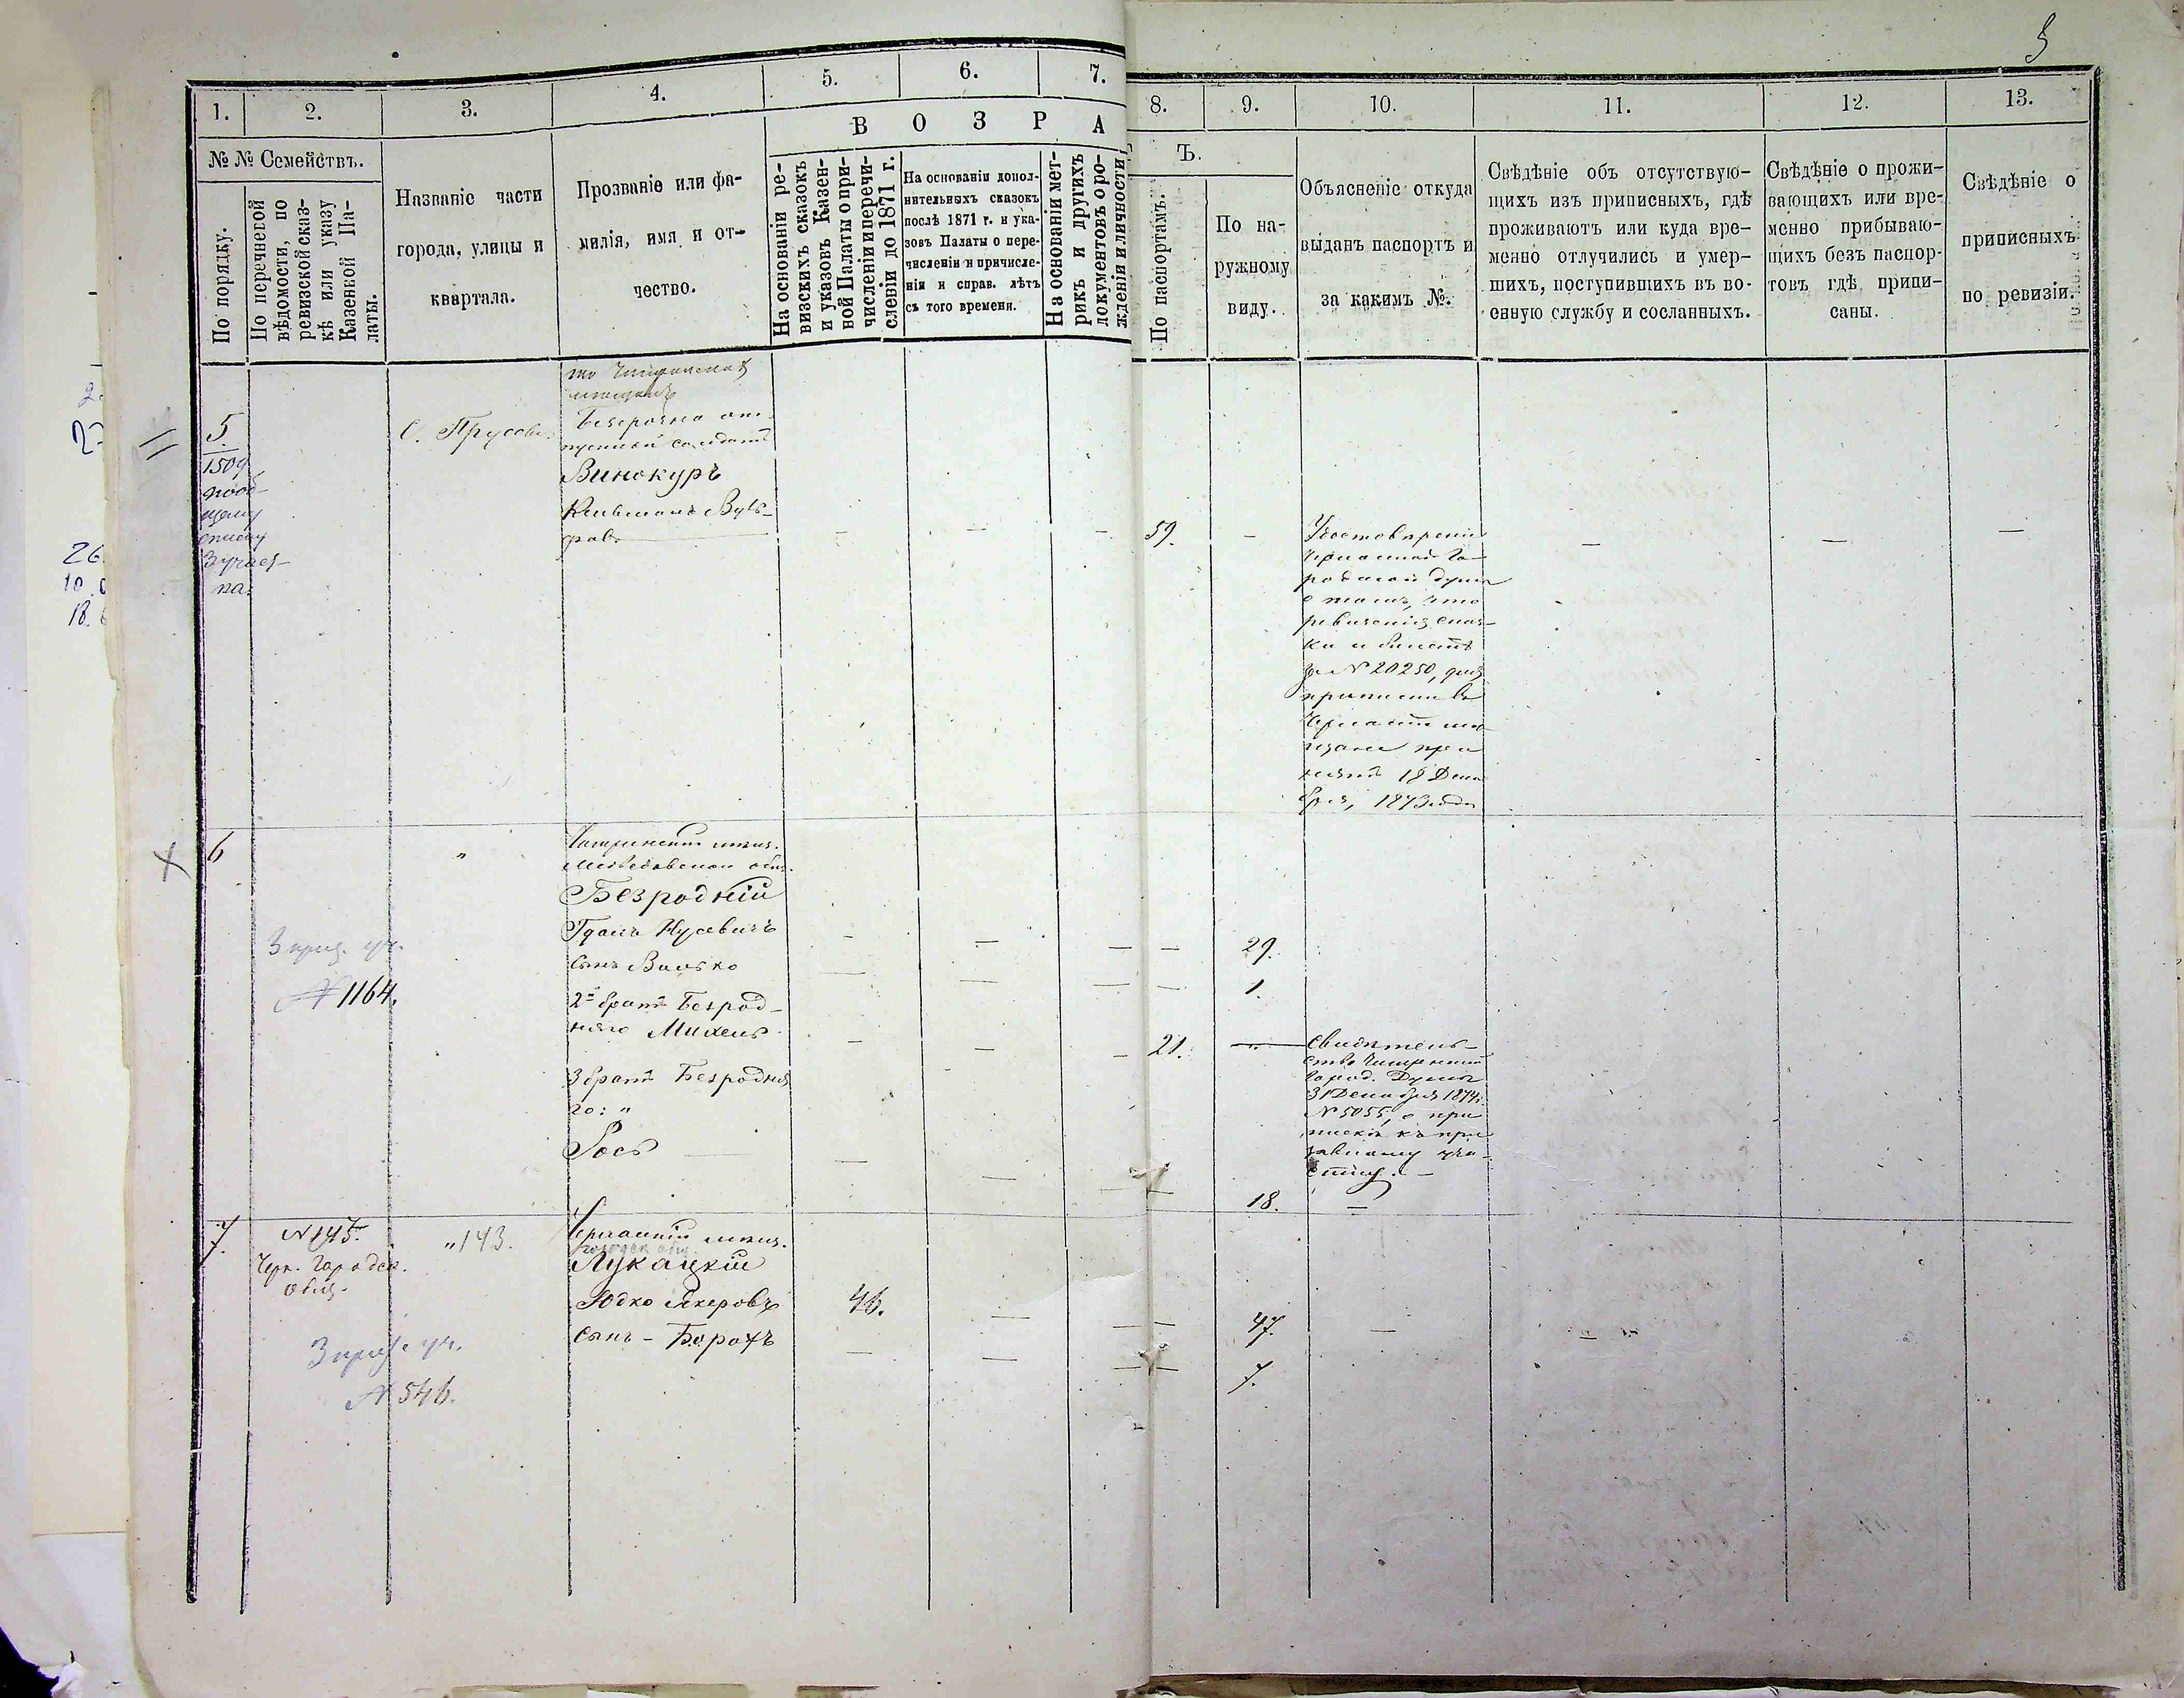 5
1.
2.
3.
4.
5.
6.
7.
8.
9.
10.
11.
12.
13.
В О З Р А
Ъ.
№ № Семействъ.
По порядку.
По перечневой
вѣдомости, по
ревизской сказ-
кѣ или указу
Казенной Па-
латы.
Названіе части
города, улицы и
квартала.
Прозваніе или фа-
милія, имя и от-
чество.
На основаніи ре-
визскихъ сказокъ
и указовъ Казен-
ной Палаты о при-
численіи и перечи-
сленіи до 1871 г.
На основаніи допол-
нительныхъ сказокъ
послѣ 1871 г. и ука-
зовъ Палаты о пере-
численіи и причисле-
ніи и справ. лѣтъ
съ того времени.
На основаніи мет-
рикъ и другихъ
документовъ о ро-
жденіи и личности
По паспортамъ.
По на-
ружному
виду.
Объясненіе откуда
выданъ паспортъ и
за какимъ №.
Свѣдѣніе объ отсутствую-
щихъ изъ приписныхъ, гдѣ
проживаютъ или куда вре-
менно отлучились и умер-
шихъ, поступившихъ въ во-
енную службу и сосланныхъ.
Свѣдѣніе о прожи-
вающихъ или вре-
менно прибываю-
щихъ безъ паспор-
товъ гдѣ припи-
саны.
Свѣдѣніе о
приписныхъ
по ревизіи.
5
1509
пооб-
щему
списку
3 участ-
ка.
С. Прусы.
Безсрочно от-
пускной солдатъ
Винокуръ
59.
Удостовѣреніе
Черкасской Го-
родской Думы
о томъ, что
ревизскія сказ-
ки и билетъ
за № 20250, для
приписки въ
мѣ-
щане при-
няты 18 Дека-
бря, 1873 года
6
"
3 приз. уч.
№ 1164.
Чигиринскій мѣщ.
Медведовской общ.
Безродній
сынъ Вилько
2й братъ Безрод-
няго Михель
3 братъ Безродня
го: "
Іось
29.
1.
21.
18.
Свидѣтель-
ство Чигиринской
Город. Думы
31 Декабря 1874 г.
№ 5055, о при
пискѣ къ при
зывному уча-
стку. –
7.
№ 145.
Черк. Городск.
общ.
3 приз. уч.
№ 546.
" 143.
Черкасскій мѣщ.
городск. общ.
Лукацкій
Юдко Лейзеровъ
сынъ – Борохъ
46.
47.
7.